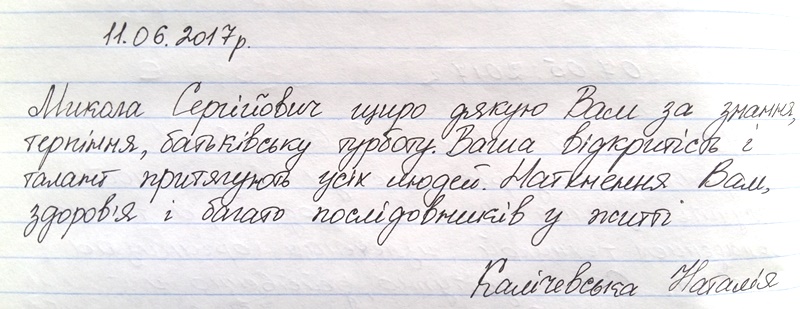 11.06.2017р.
Микола Сергійович щиро дякую Вам за знання,
терпіння, батьківську турботу. Ваша відкритість і
талант притягують усіх людей. Натхнення Вам,
здоров'я і багато послідовників у житті
Калічевська Наталія